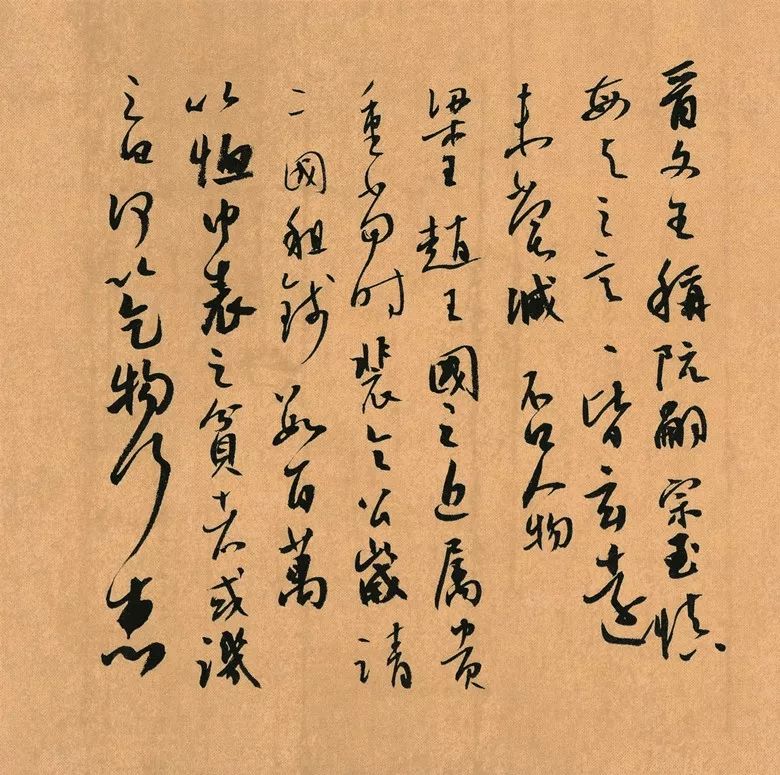 晉文王稱阮嗣宗至慎
每與之言〻皆玄遠
未嘗臧否人物
梁王趙王國之近属貴
重當时裴令公歲請
二國租錢數百萬
以恤中表之貧者或譏
之曰何以乞物行惠